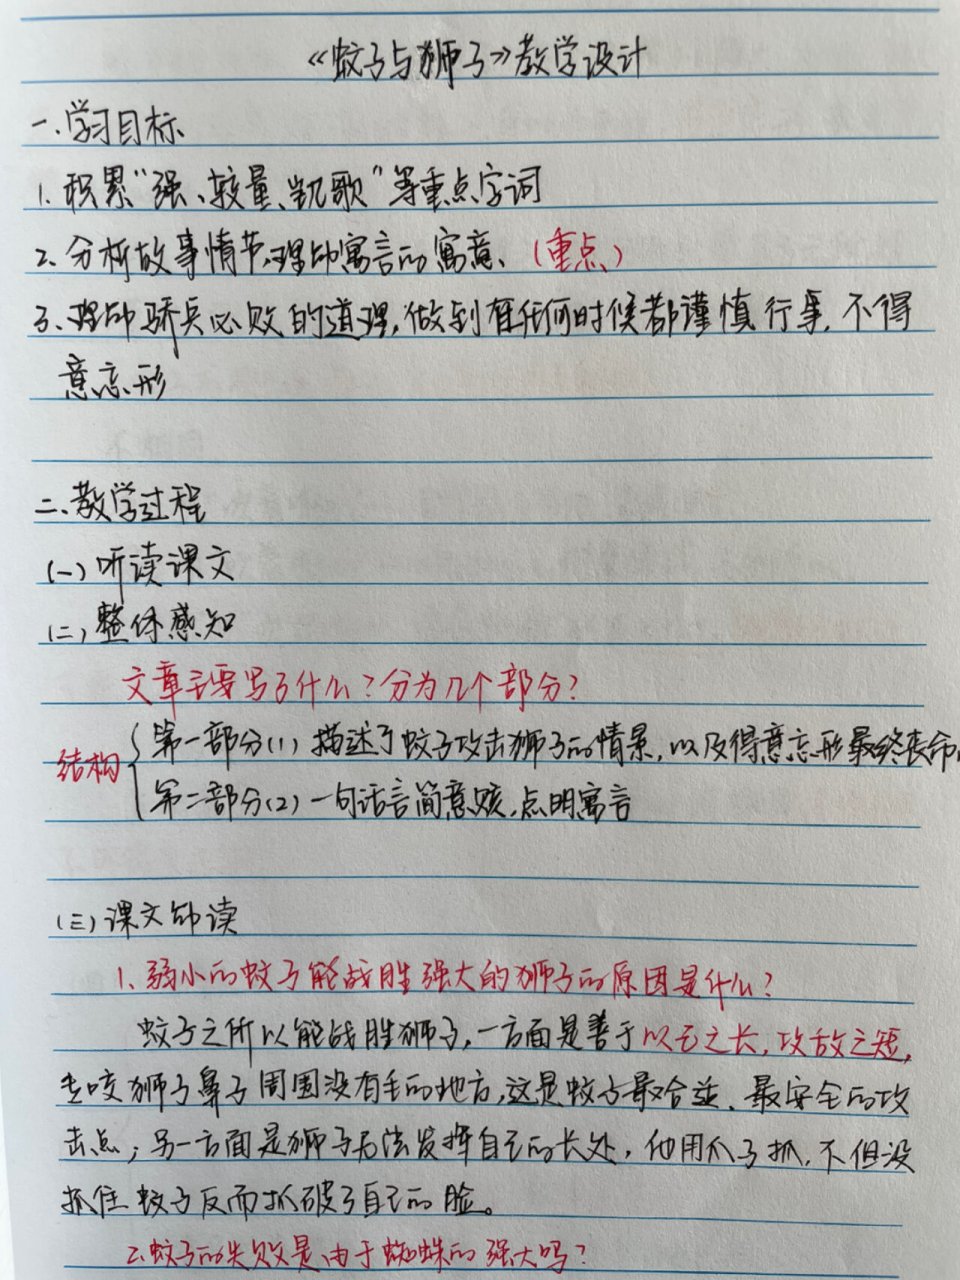 《蚊子与狮子》教学设计
一.学习目标
1.积累“强、较量、凯歌”等重点字词
2.分析故事情节.理解寓言的寓意、（重点）
3.理解骄兵必败的道理,做到在任何时候都谨慎行事,不得
意忘形
二.教学过程
(一)听读课文
(二)整体感知
文章主要写了什么?分为几个部分?
结构 第一部分(1) 描述了蚊子攻击狮子的情景,以及得意忘形最终丧命.
第二部分(2)一句话言简意赅,点明寓言
(三)课文研读
1.弱小的蚊子能战胜强大的狮子的原因是什么?
蚊子之所以能战胜狮子,一方面是善于以己之长,攻敌之短,
去咬狮子鼻子周围没有毛的地方,这是蚊子最合适、最安全的攻
击点;另一方面是狮子无法发挥自己的长处,他用爪子抓,不但没
抓住蚊子反而抓破了自己的脸。
2.蚊子的失败是由于蜘蛛的强大吗?